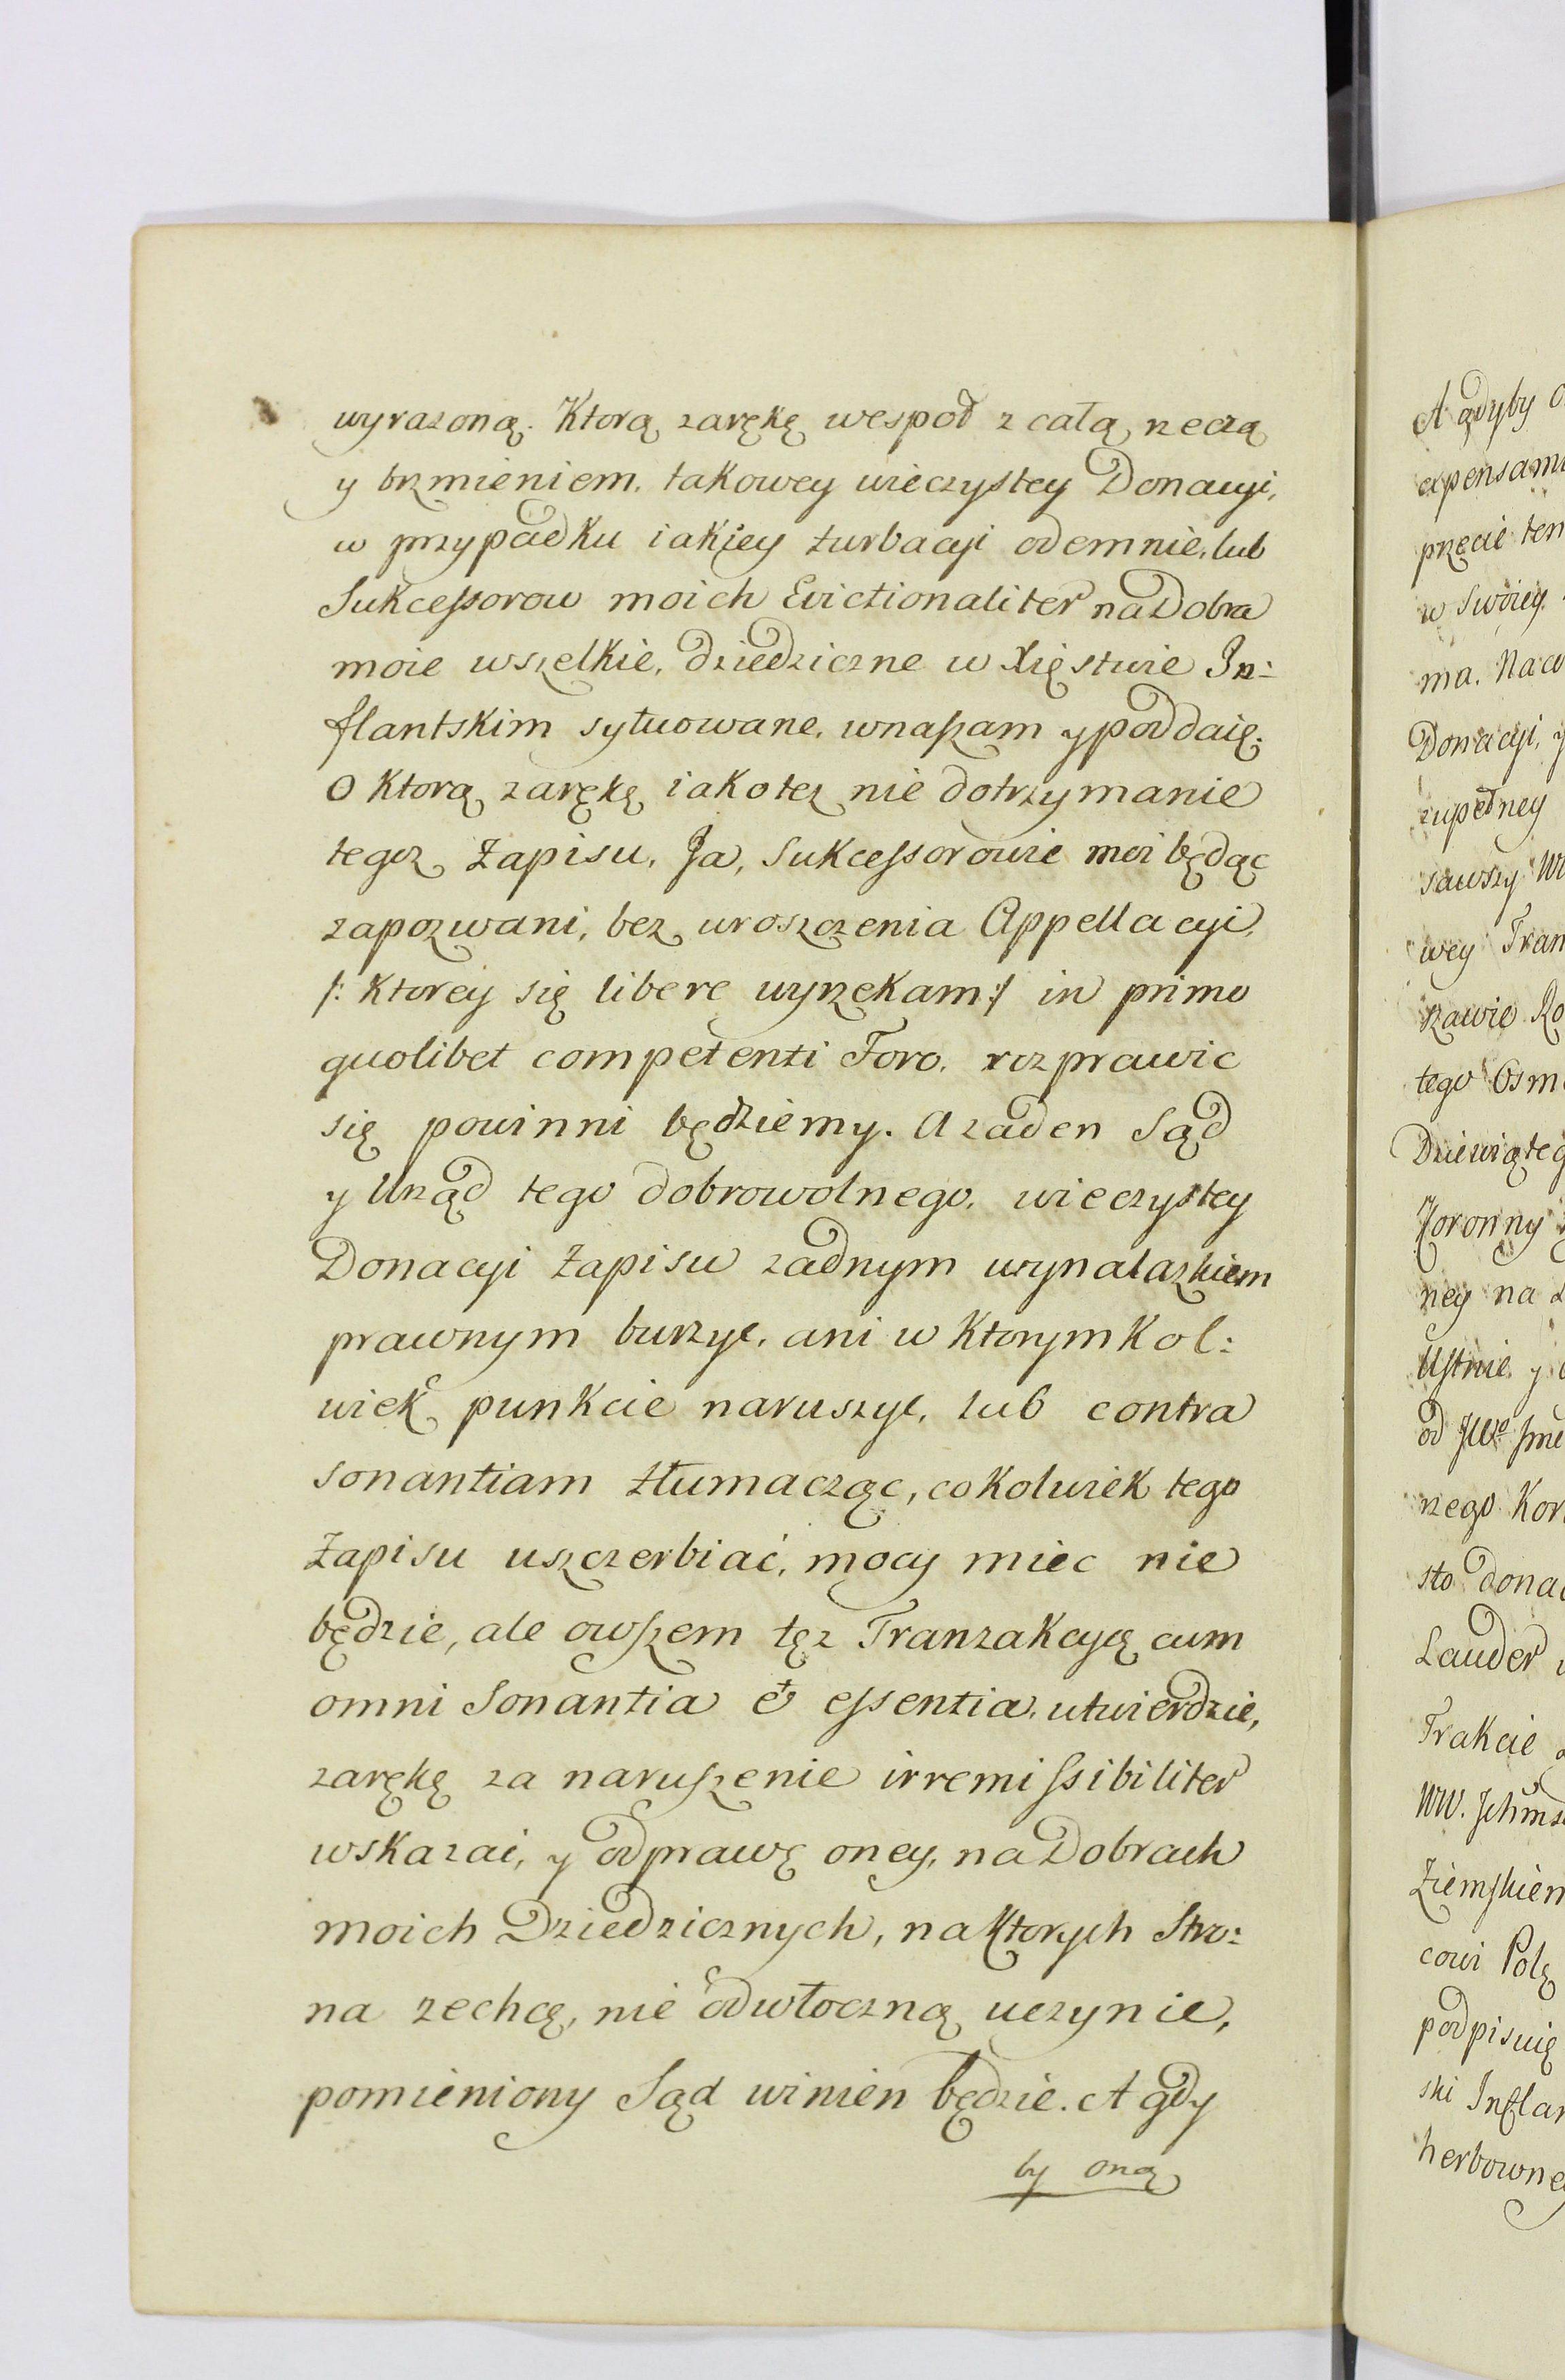 wyrazoną. Ktorą zarękę wespoł z całą rzeczą
y brzmieniem, takowey wieczystey Donacyi,
w przypadku iakiey turbacyi odemnie, lub
Sukcessorow moich Evictionaliter na Dobra
moie wszelkie, dziedziczne w Xięstwie In:
flantskim sytuowane, wnaszam y poddaię.
O ktorą zarękę iako tez nie dotrzymanie
tegoz Zapisu, Ja, Sukcessorowie moi będąc
zapozwani, bez uroszczenia Appellacyi,
/: Ktorey się libere wyrzekam :/ in primo
quolibet competenti Foro, rozprawic
się powinni będziemy. A zaden Sąd
y Urząd tego dobrowolnego, wieczystey
Donacyi Zapisu zadnym wynalazkiem
prawnym burzyc, ani w Ktorymkol:
wiek punkcie naruszyc, lub contra
sonantiam tłumacząc, cokolwiek tego
Zapisu uszczerbiać, mocy miec nie
będzie, ale owszem tęz Tranzakcyą cum
omni Sonantia et essentia, utwierdzic,
zarękę za naruszenie irremissibiliter
wskazac, y odprawę oney, na Dobrach
moich Dziedzicznych, na Ktorych Stro:
na zechcę, nie odwłoczną uczynic,
pomieniony Sąd winien będzie. A gdy
by oną
A gdyby
expensami
przecie ten
w Swoiey
ma. Na co
Donacyi, y
zupełney
sawszy
wey Tran
szawie Ro
tego Osm
Dziewiąteg
Koronny
ney na
Ustnie y
od
nego Kor
sto dona
Lauder
Trakcie
WW.
Ziemskiem
cowi Polę
podpisuię
ski Inflan
herbowne